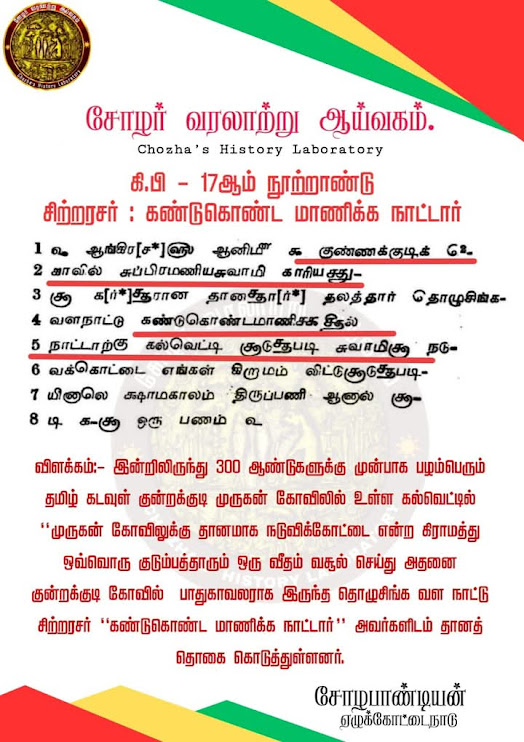 சோழர் வரலாற்று ஆய்வகம்.
Chozha's History Laboratory
கி.பி - 17ஆம் நூற்றாண்டு
சிற்றரசர் : கண்டுகொண்ட மாணிக்க நாட்டார்
1 ஆங்கிர[ச*] குண்ணக்குடிக்
2 காவில் சுப்பிரமணியசுவாமி காரியசத்து-
3 தலத்தார் தொழுசிங்க-
4 வளநாட்டு கண்டுகொண்டமாணிக்க
5 நாட்டாற்கு கல்வெட்டி குடுத்தபடி சுவாமிக்கு நடு-
6 வக்கொட்டை எங்கள் கிறமம் விட்டுகுடுத்தபடி-
7 யினாலெ க்ஷாமகாலம் திருப்பணி ஆனால்
8 டி ஒரு பணம்
விளக்கம்:- இன்றிலிருந்து 300 ஆண்டுகளுக்கு முன்பாக பழம்பெரும்
தமிழ் கடவுள் குன்றக்குடி முருகன் கோவிலில் உள்ள கல்வெட்டில்
"முருகன் கோவிலுக்கு தானமாக நடுவிக்கோட்டை என்ற கிராமத்து
ஒவ்வொரு குடும்பத்தாரும் ஒரு வீதம் வசூல் செய்து அதனை
குன்றக்குடி கோவில் பாதுகாவலராக இருந்த தொழுசிங்க வள நாட்டு
சிற்றரசர் "கண்டுகொண்ட மாணிக்க நாட்டார்" அவர்களிடம் தானத்
தொகை கொடுத்துள்ளனர்.
சோழபாண்டியன்
ஏழுக்கோட்டைநாடு